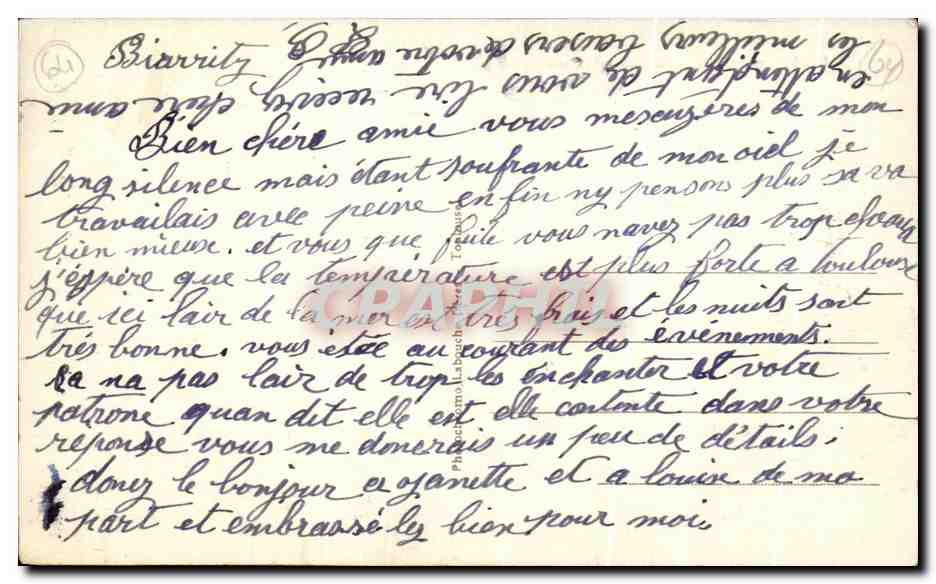 Biarritz
Bien chére amie vous mescuzéres de mon
long silence mais étant soufrante de mon oiel je
travailais avec peine enfin ny pensons plus sa va
bien mieux. et vous que faite vous navez pas trop chaux
j'espère que la température est plus forte a toulouse
que ici lair de la mer est très frais et les nuits sont
trés bonne. vous etée au courant des évènements.
sa na pas lair de trop les enchanter et votre
patrone quan dit elle est elle contente dans votre
réponse vous me donerais un peu de détails.
donez le bonjour a janette et a louise de ma
part et embrassé les bien pour moi.
en attendant de vous lire recevez chere amie
les meilleurs baisers de votre amie
Phototypie Labouche Frères Toulouse
CPAPHIL